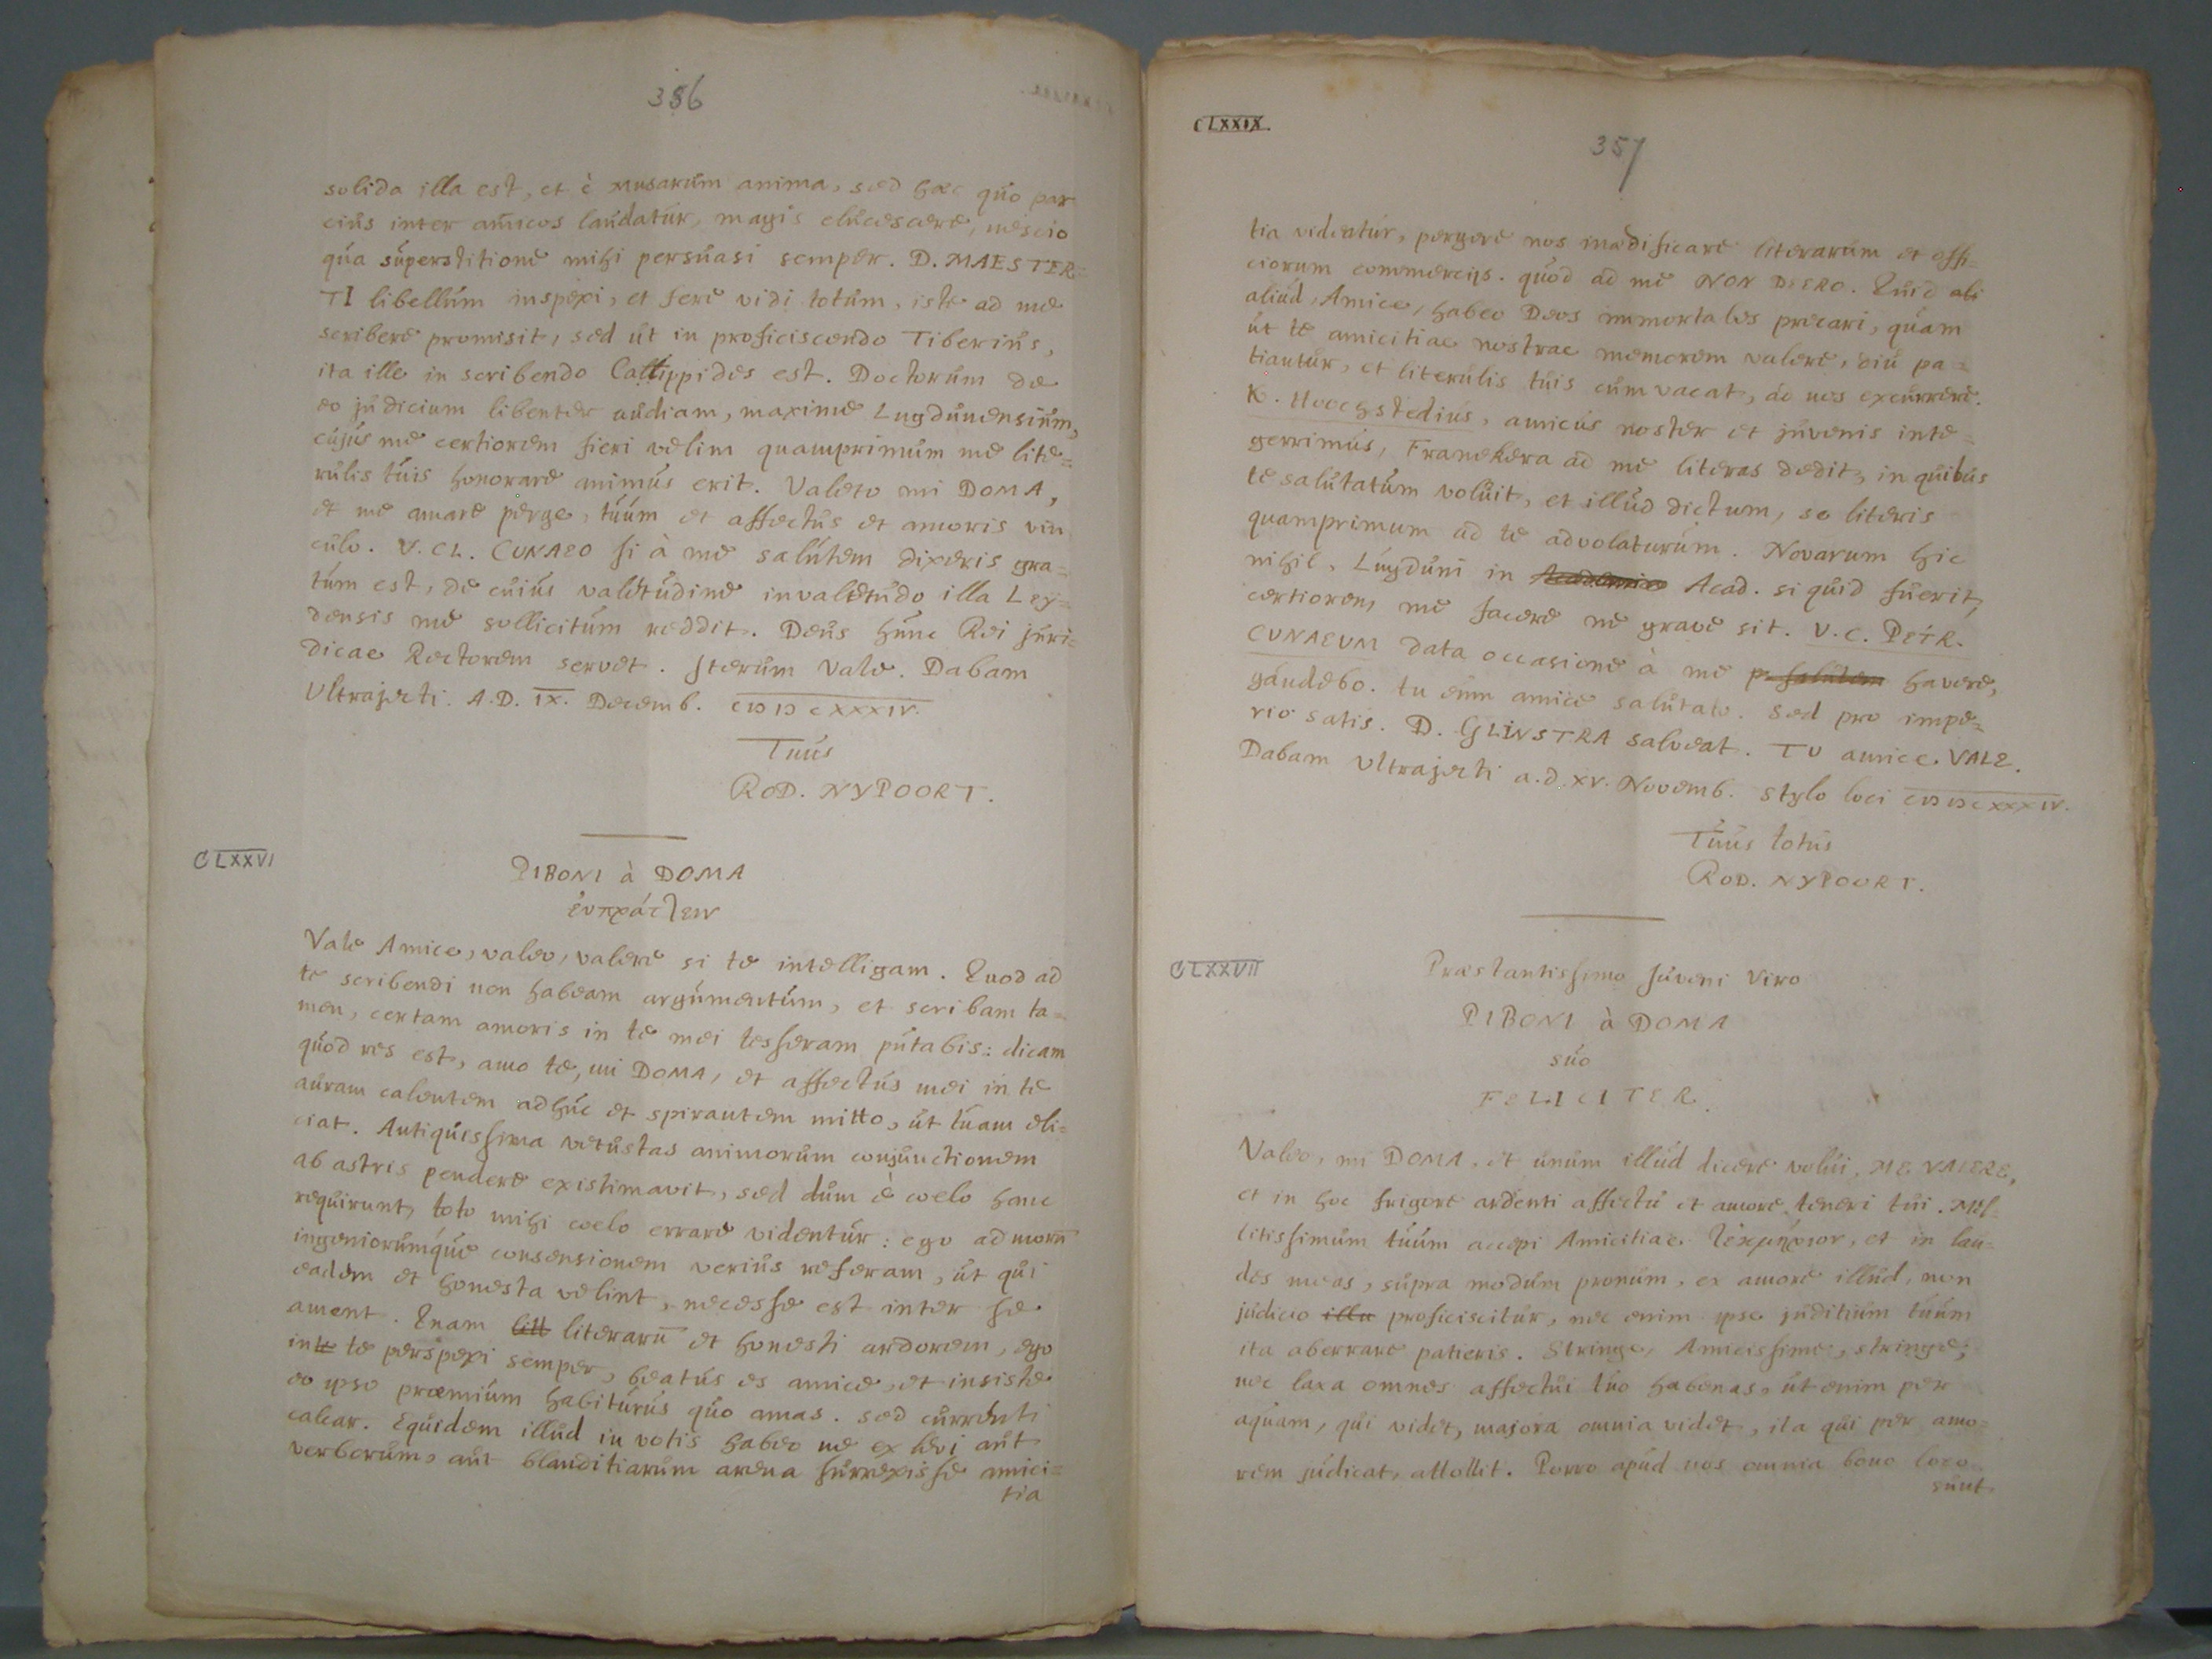 386
solida illa est, et è Musarum anima, sed haec quo par
cius inter amicos laudatur, magis elucescere, nescio
qua superstitione mihi persuasi semper. D. MAESTER-
TI libellum inspexi, et fere vidi totum, iste ad me
scribere promisit, sed ut in proficiscendo Tiberius,
ita ille in scribendo Callippides est. Doctorum de
eo judicium libenter audiam, maxime Lugdunensium,
cujus me certiorem fieri velim quamprimum me lite=
rulis tuis honorare animus erit. Valeto mi DOMA,
et me amare perge, tuum et affectus et amoris vin
culo. V. CL. CUNAEO si à me salutem dixeris gra=
tum est, de cuius valetudine invaletudo illa Ley=
densis me sollicitum reddit. Deus hunc Rei juri=
dicae Rectorem servet. Iterum Vale. Dabam
Ultrajecti. A.D. IX. Decemb. CIƆ IƆ CXXXIV.
Tuus
ROD. NYPOORT.
CLXXVI
PIBONI à DOMA
ἐυπράττειν
Vale Amice, valeo, valere si te intelligam. Quod ad
te scribendi non habeam argumentum, et scribam ta=
men, certam amoris in te mei tesseram putabis: dicam
quod res est, amo te, mi DOMA, et affectus mei in te
auram calentem adhuc et spirantem mitto, ut tuam eli=
ciat. Antiquissima vetustas animorum conjunctionem
ab astris pendere existimavit, sed dum è coelo hanc
requirunt, toto mihi coelo errare videntur: ego ad morũ
ingeniorumque consensionem verius referam, ut qui
eadem et honesta velint, necesse est inter se
ament. Quam litt literarũ et honesti ardorem, ego
inte te perspexi semper, beatus es amice, et insiste
eo ipso praemium habiturus quo amas. sed currenti
calcar. Equidem illud in votis habeo ne ex levi aut
verborum, aut blanditiarum arena surrexisse amici=
tia
CLXXIX.
357
tia videatur, pergere nos inaedificare literarum et offi=
ciorum commercijs. quod ad me NON DEERO. Quid ali
aliud, Amice, habeo Deos immortales precari, quam
ut te amicitiae nostrae memorem valere, diu pa=
tiantur, et literulis tuis cum vacat, ad nos excurrere.
K. Hoochstedius, amicus noster et juvenis inte=
gerrimus, Franekera ad me literas dedit, in quibus
te salutatum voluit, et illud dictum, se literis
quamprimum ad te advolaturum. Novarum hic
nihil, Lugduni in Academico Acad. si quid fuerit,
certiorem me facere ne grave sit. V. C. PETR.
CUNAEUM data occasione à me p. salutem havere,
gaudebo. tu eum amice salutato. Sed pro impe=
rio satis. D. GLINSTRA salveat. TU amice VALE.
Dabam Ultrajecti a.d. XV. Novemb. stylo loci CIƆ IƆ CXXXIV.
Tuus totus
ROD. NYPOORT.
CLXXVII
Praestantissimo Juveni Viro
PIBONI à DOMA
suo
FELICITER.
Valeo, mi DOMA, et unum illud dicere volui, ME VALERE,
et in hoc frigore ardenti affectu et amore teneri tui. Mel=
litissimum tuum accepi Amicitiae τεκμήριον, et in lau=
des meas, supra modum pronum, ex amore illud, non
judicio illu proficiscitur, nec enim ipse juditium tuum
ita aberrare patieris. Stringe, Amicissime, stringe,
nec laxa omnes affectui tuo habenas, ut enim per
aquam, qui videt, majora omnia videt, ita qui per amo=
rem judicat, attollit. Porro apud nos omnia bono loco
sunt